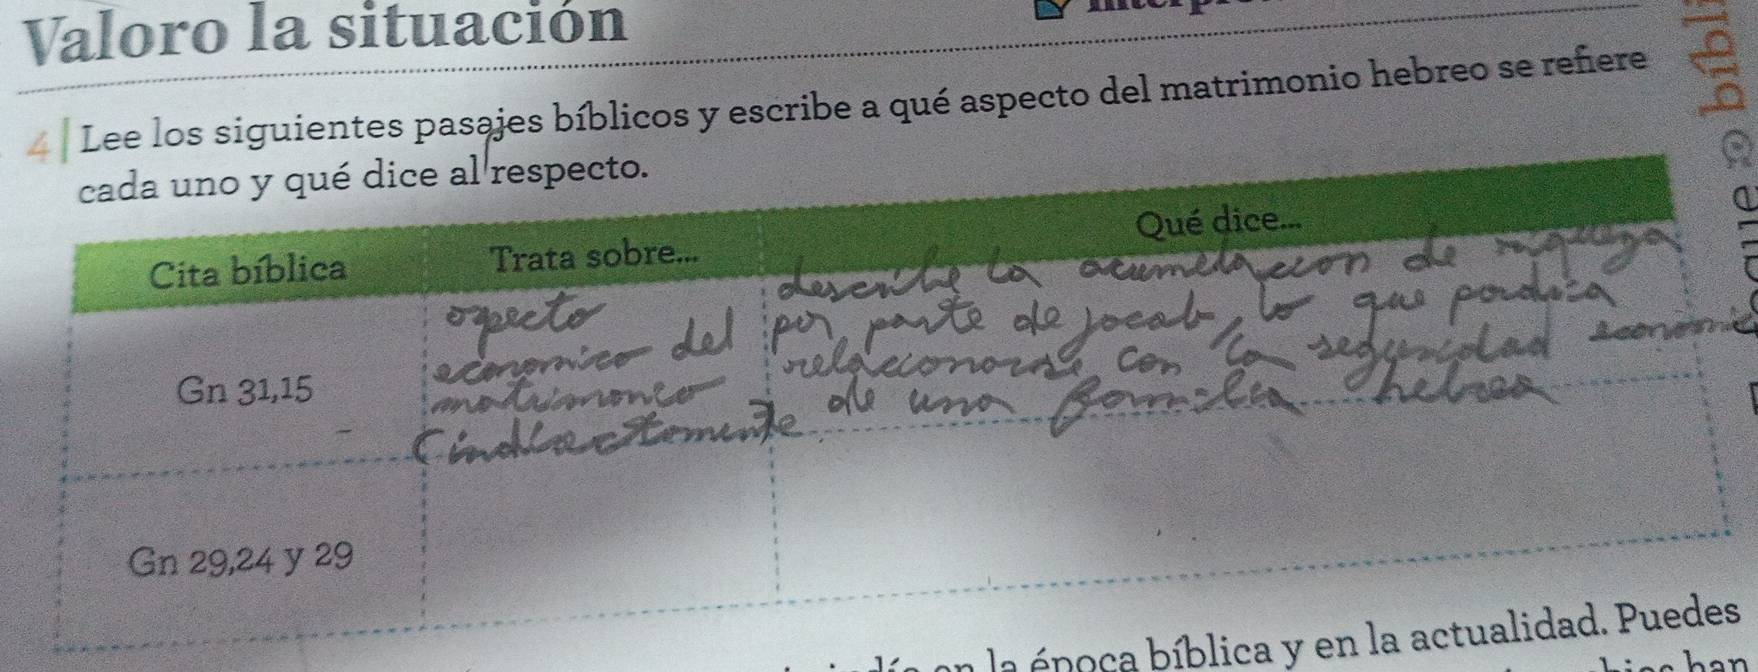 Valoro la situación
4 Lee los siguientes pasajes bíblicos y escribe a qué aspecto del matrimonio hebreo se refiere
cada uno y qué dice al respecto.
Cita bíblica Trata sobre... Qué dice...
Gn 31,15
aspecto
economico del
matrimonio
(indirectamente
describe la acumulacion de riqueza
por parte de jocab, lo que podria
relacionarse con la seguridad economic
de una familia hebrea
Gn 29,24 y 29
en la época bíblica y en la actualidad. Puedes
han
bíbli